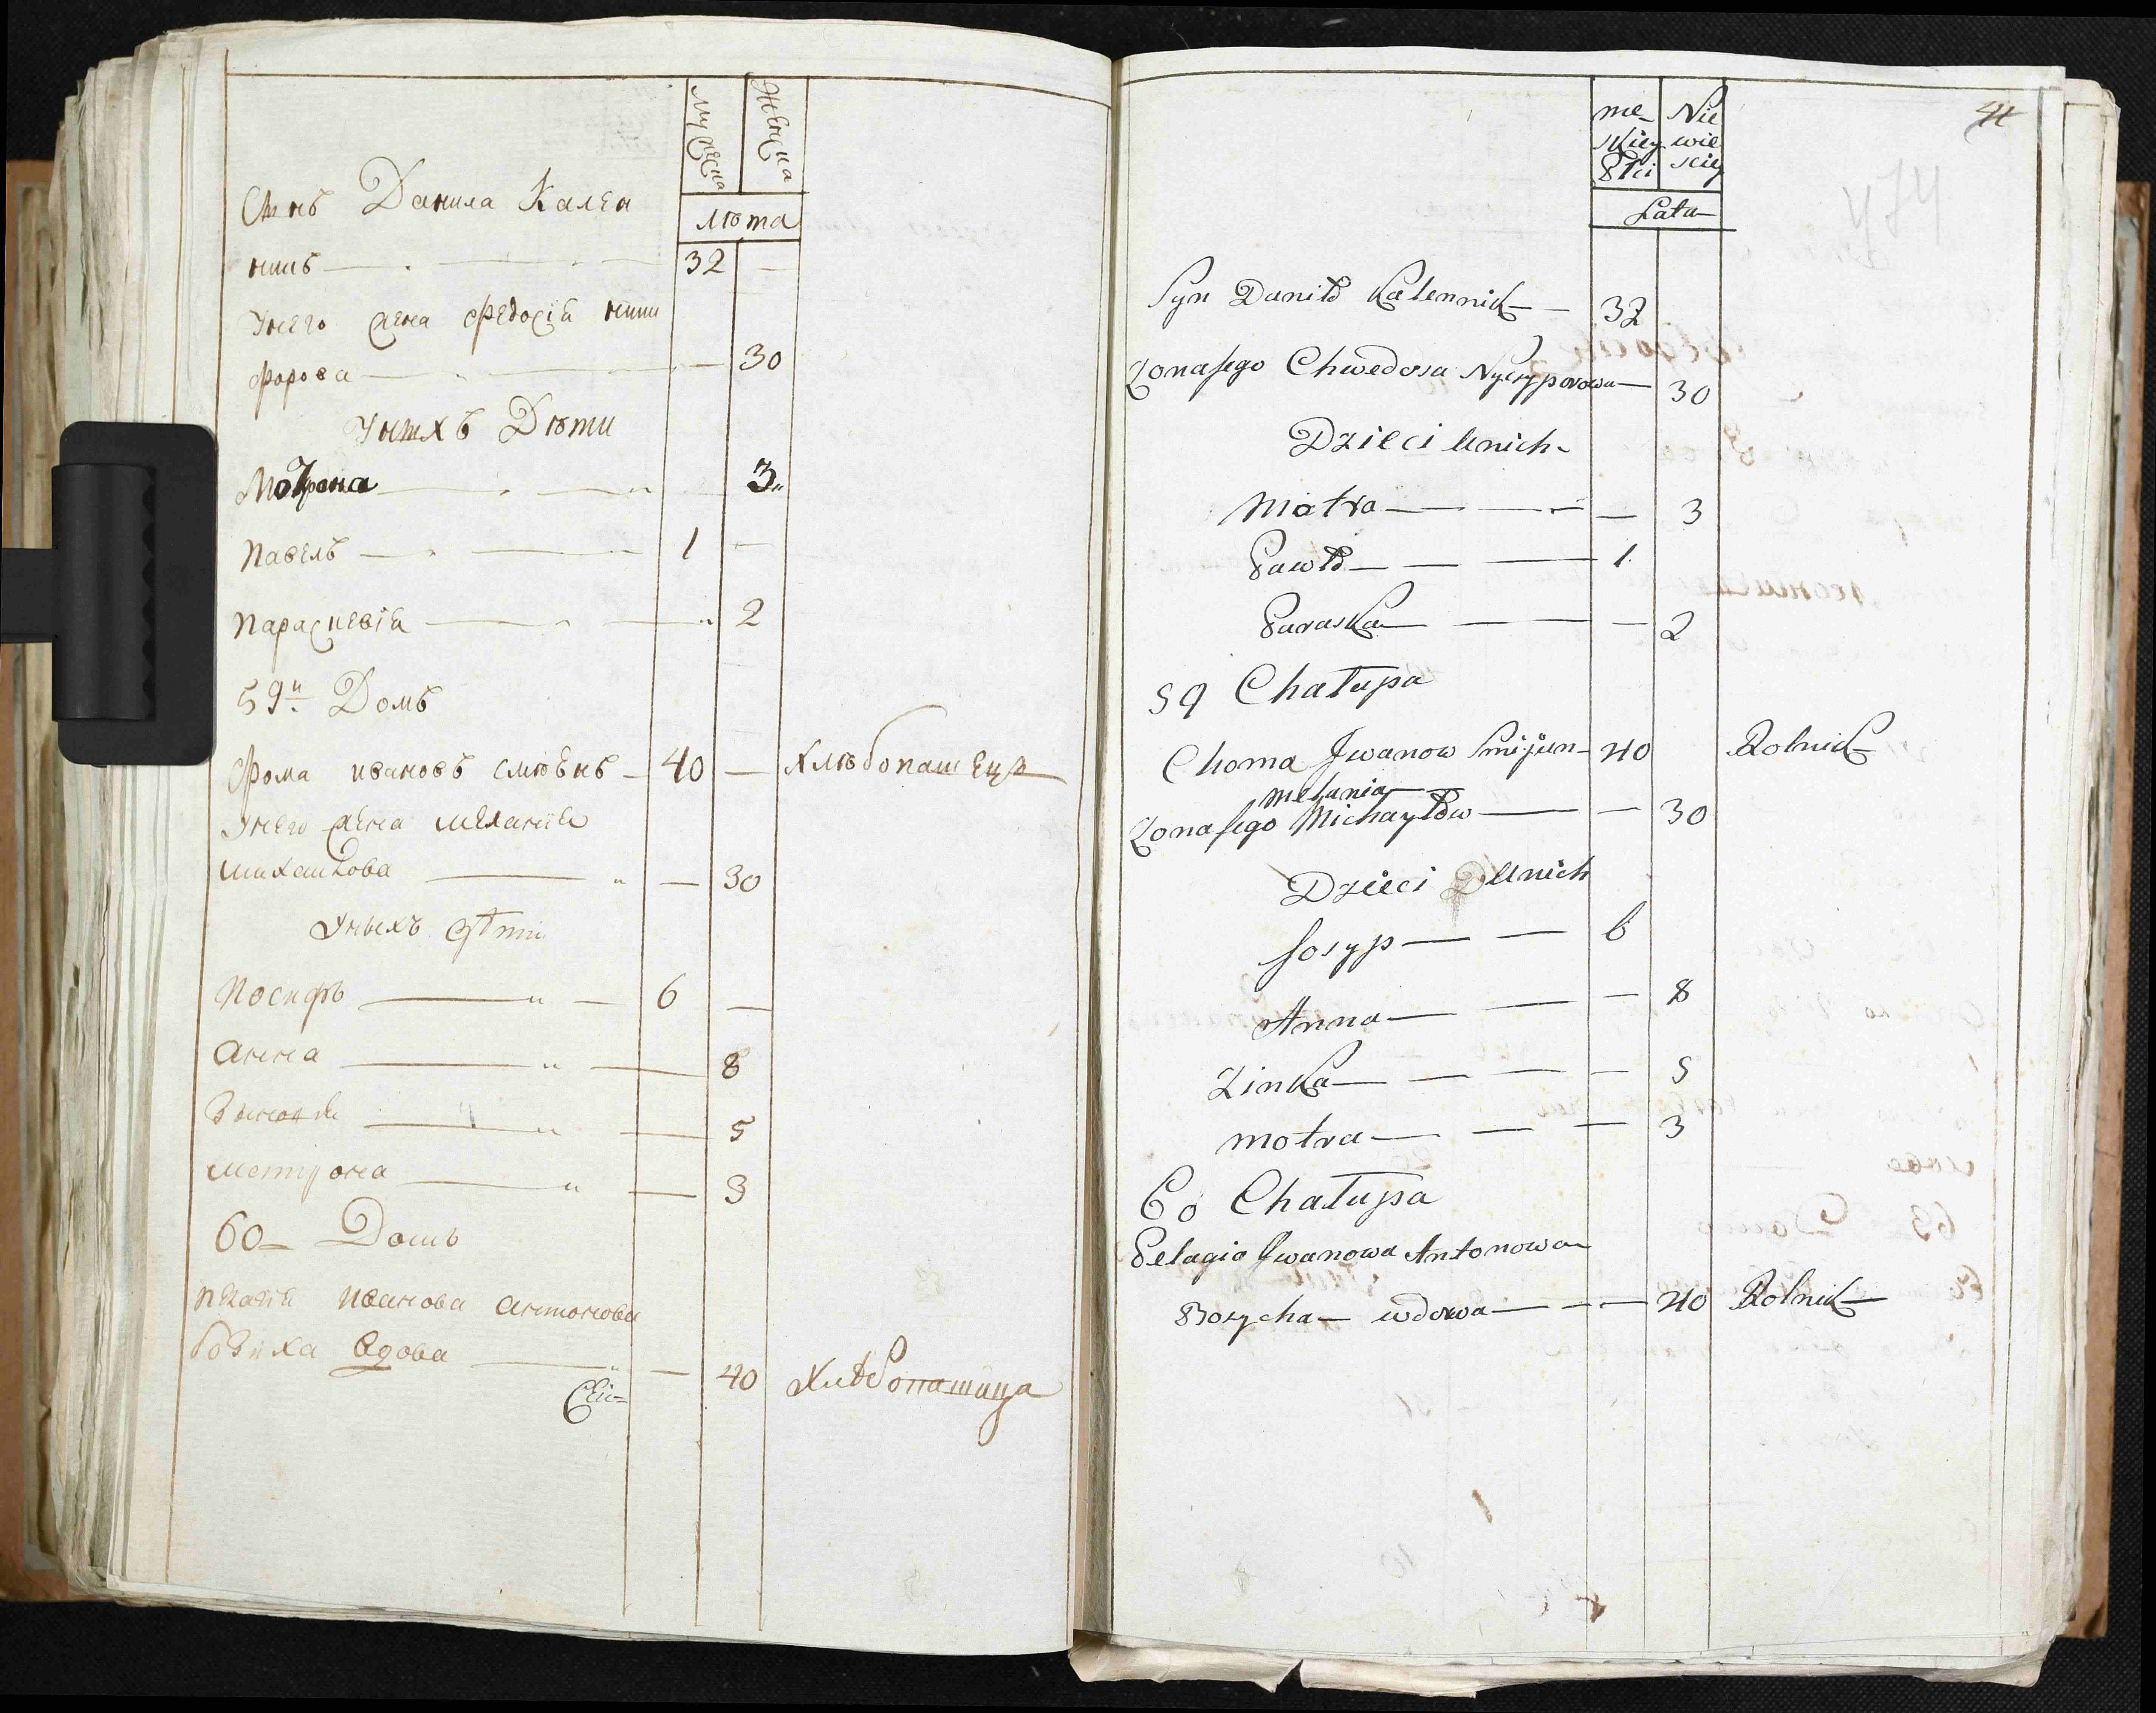 Мужеска Женска
лѣта
Сынъ Данила Кален
никъ — 32 —
У него жена Федосія Ники
форова — 30
У ныхъ Дѣти
Мотрона — 3
Павелъ — 1 —
Параскевія — 2
59й Домъ
Фома ивановъ смѣенъ — 40 — Хлѣбопашецъ
У него жена Меланія
михайлова — 30
У ныхъ дѣти
Иосифъ — 6 —
Анна — 8
— 5
Мотрона — 3
60 — Домъ
Пелагія Иванова Антонова
вдова — 40 Хлѣбопашица
41
474
mę- Nie
skiey wie
Płci sciey
Lata
Syn Daniło Kalennik — 32
Zona jego Chwedosa Nyczyporowa — 30
Dzieci u nich
Motra — 3
Pawło — 1
Paraska — 2
59 Chałupa
Choma Jwanow Smijun — 40 Rolnik
melania
Zona jego Michayłow — 30
Dzieci u nich
Josyp — 6
Anna — 8
Zinka — 5
motra — 3
60 Chałupa
Pelagia Jwanowa Antonowa
Bozycha — wdowa — 40 Rolnik